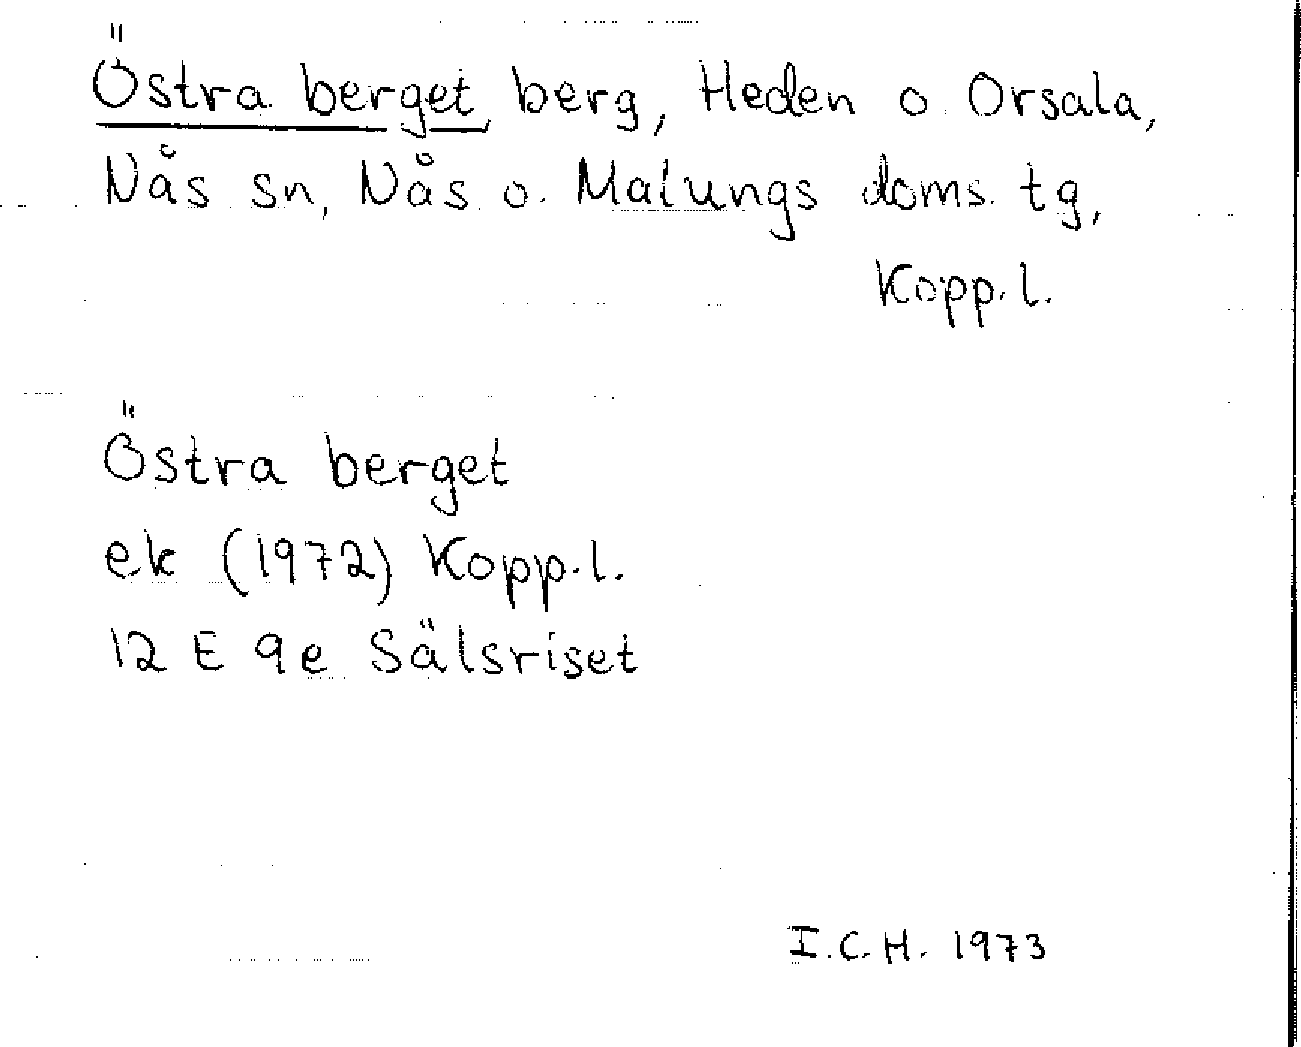 Östra berget berg, Heden o. Orsala,
Nås sn, Nås o. Malungs doms. tg,
Kopp. l.
Östra berget
ek (1972) Kopp. l.
12 E 9e Sälsriset
I.C.H. 1973